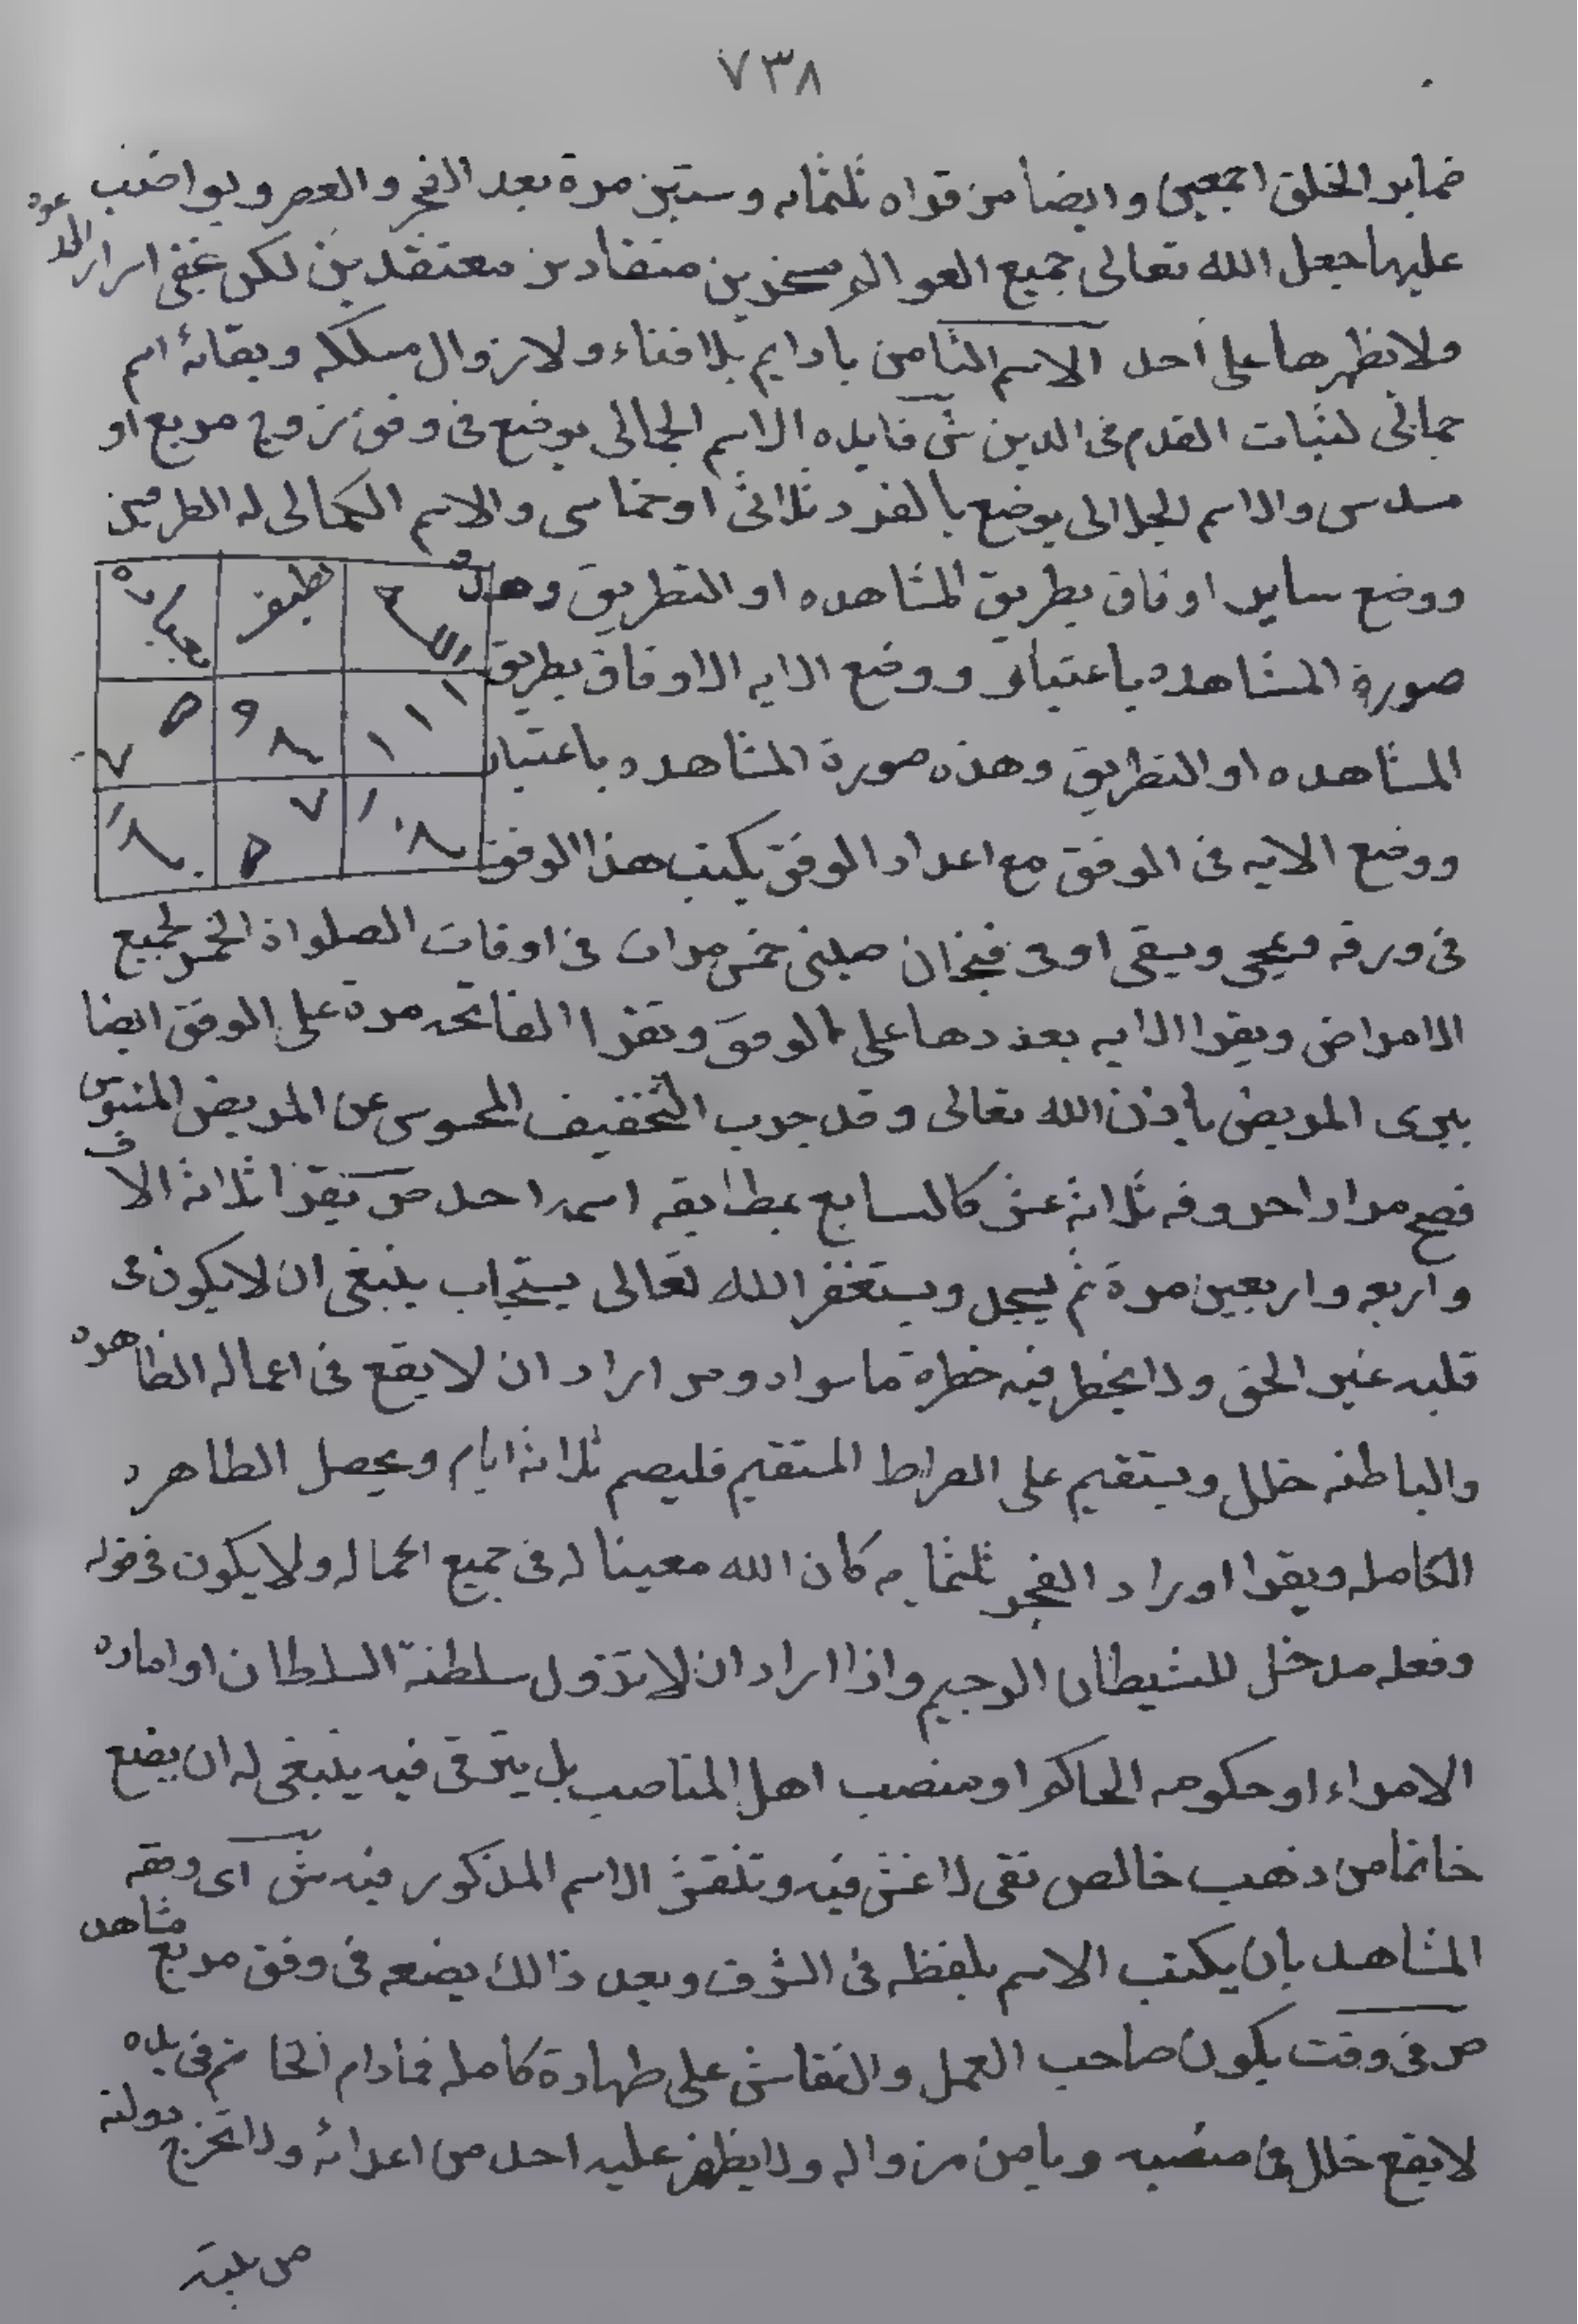 ٧٣٨
ضماير الخلق اجمعين وايضا من قراه ثلثمائه وستين مرة بعد الفجر والعصر ويواضب
عليها جعل الله تعالى جميع العوالم مسخرين منقادين معتقدين لكن يخفى اسرار
ولا يظهرها على احد الاسم الثامن يا دايم بلا فناء ولا زوال ملكه وبقائه اسم
جمالى لثبات القدم فى الدين ش فايده الاسم الجمالى يوضع فى وفق زوج مربع او
مسدس والاسم الجلالى يوضع بالفرد ثلاثى او خماسى والاسم الكمالى له الطرفين
ووضع ساير اوفاق بطريق المشاهده او التطريق وهذه
صورة المشاهده باعتبار ووضع الايه الاوفاق بطريق
المشاهده او التطريق وهذه صورة المشاهده باعتبار
ووضع الايه فى الوفق مع اعداد الوفق يكتب هذا الوفق
الله لطيف بعباده
١١١ ٩٨ ٥٧
١٠٨ ٧٥
فى ورقه ويمحى ويسقى او فى فنجان صينى خمس مرات فى اوقات الصلواة الخمس لجميع
الامراض ويقرا الايه بعددها على الوفق وتقرا الفاتحه مرة على الوفق ايضا
يبرى المريض باذن الله تعالى وقد جرب التخفيف المحسوس عن المريض
فصح مرارا حروفه ثلاثة عشر كالسابع بمطابقه اسم احد ص يقرا ثلاثة الاف
واربعه واربعين مرة ثم يسجد ويستغفر الله تعالى يستجاب ينبغى ان لا يكون فى
قلبه غير الحق ولا يخطر فيه خطرة ما سواه ومن اراد ان لا يقع فى اعماله الظاهره
والباطنه خلل ويستقيم على الصراط المستقيم فليصم ثلاثة ايام ويحصل الطاهره
الكامله ويقرا اوراد الفجر ثلثمايه كان الله معينا له فى جميع اعماله ولا يكون فى قوله
وفعله مدخل للشيطان الرجيم واذا اراد ان لا تزول سلطنة السلطان او اماره
الامراء او حكومه الحاكم او منصب اهل المناصب بل يترقى فيه ينبغى له ان يضع
خاتما من ذهب خالص نقى لا غش فيه وتنقش الاسم المذكور فيه ش اى وفقه
المشاهد بان يكتب الاسم بلفظه فى الشرف وبعد ذالك يضعه فى وفق مربع مشاهد
ص فى وقت يكون صاحب العمل والنقاش على طهارة كامله فمادام الخاتم فى يده
لا يقع خلل فى منصبه ويامن من زواله ولا يظفر عليه احد من اعدائه ولا تخرج دولته
من بيته